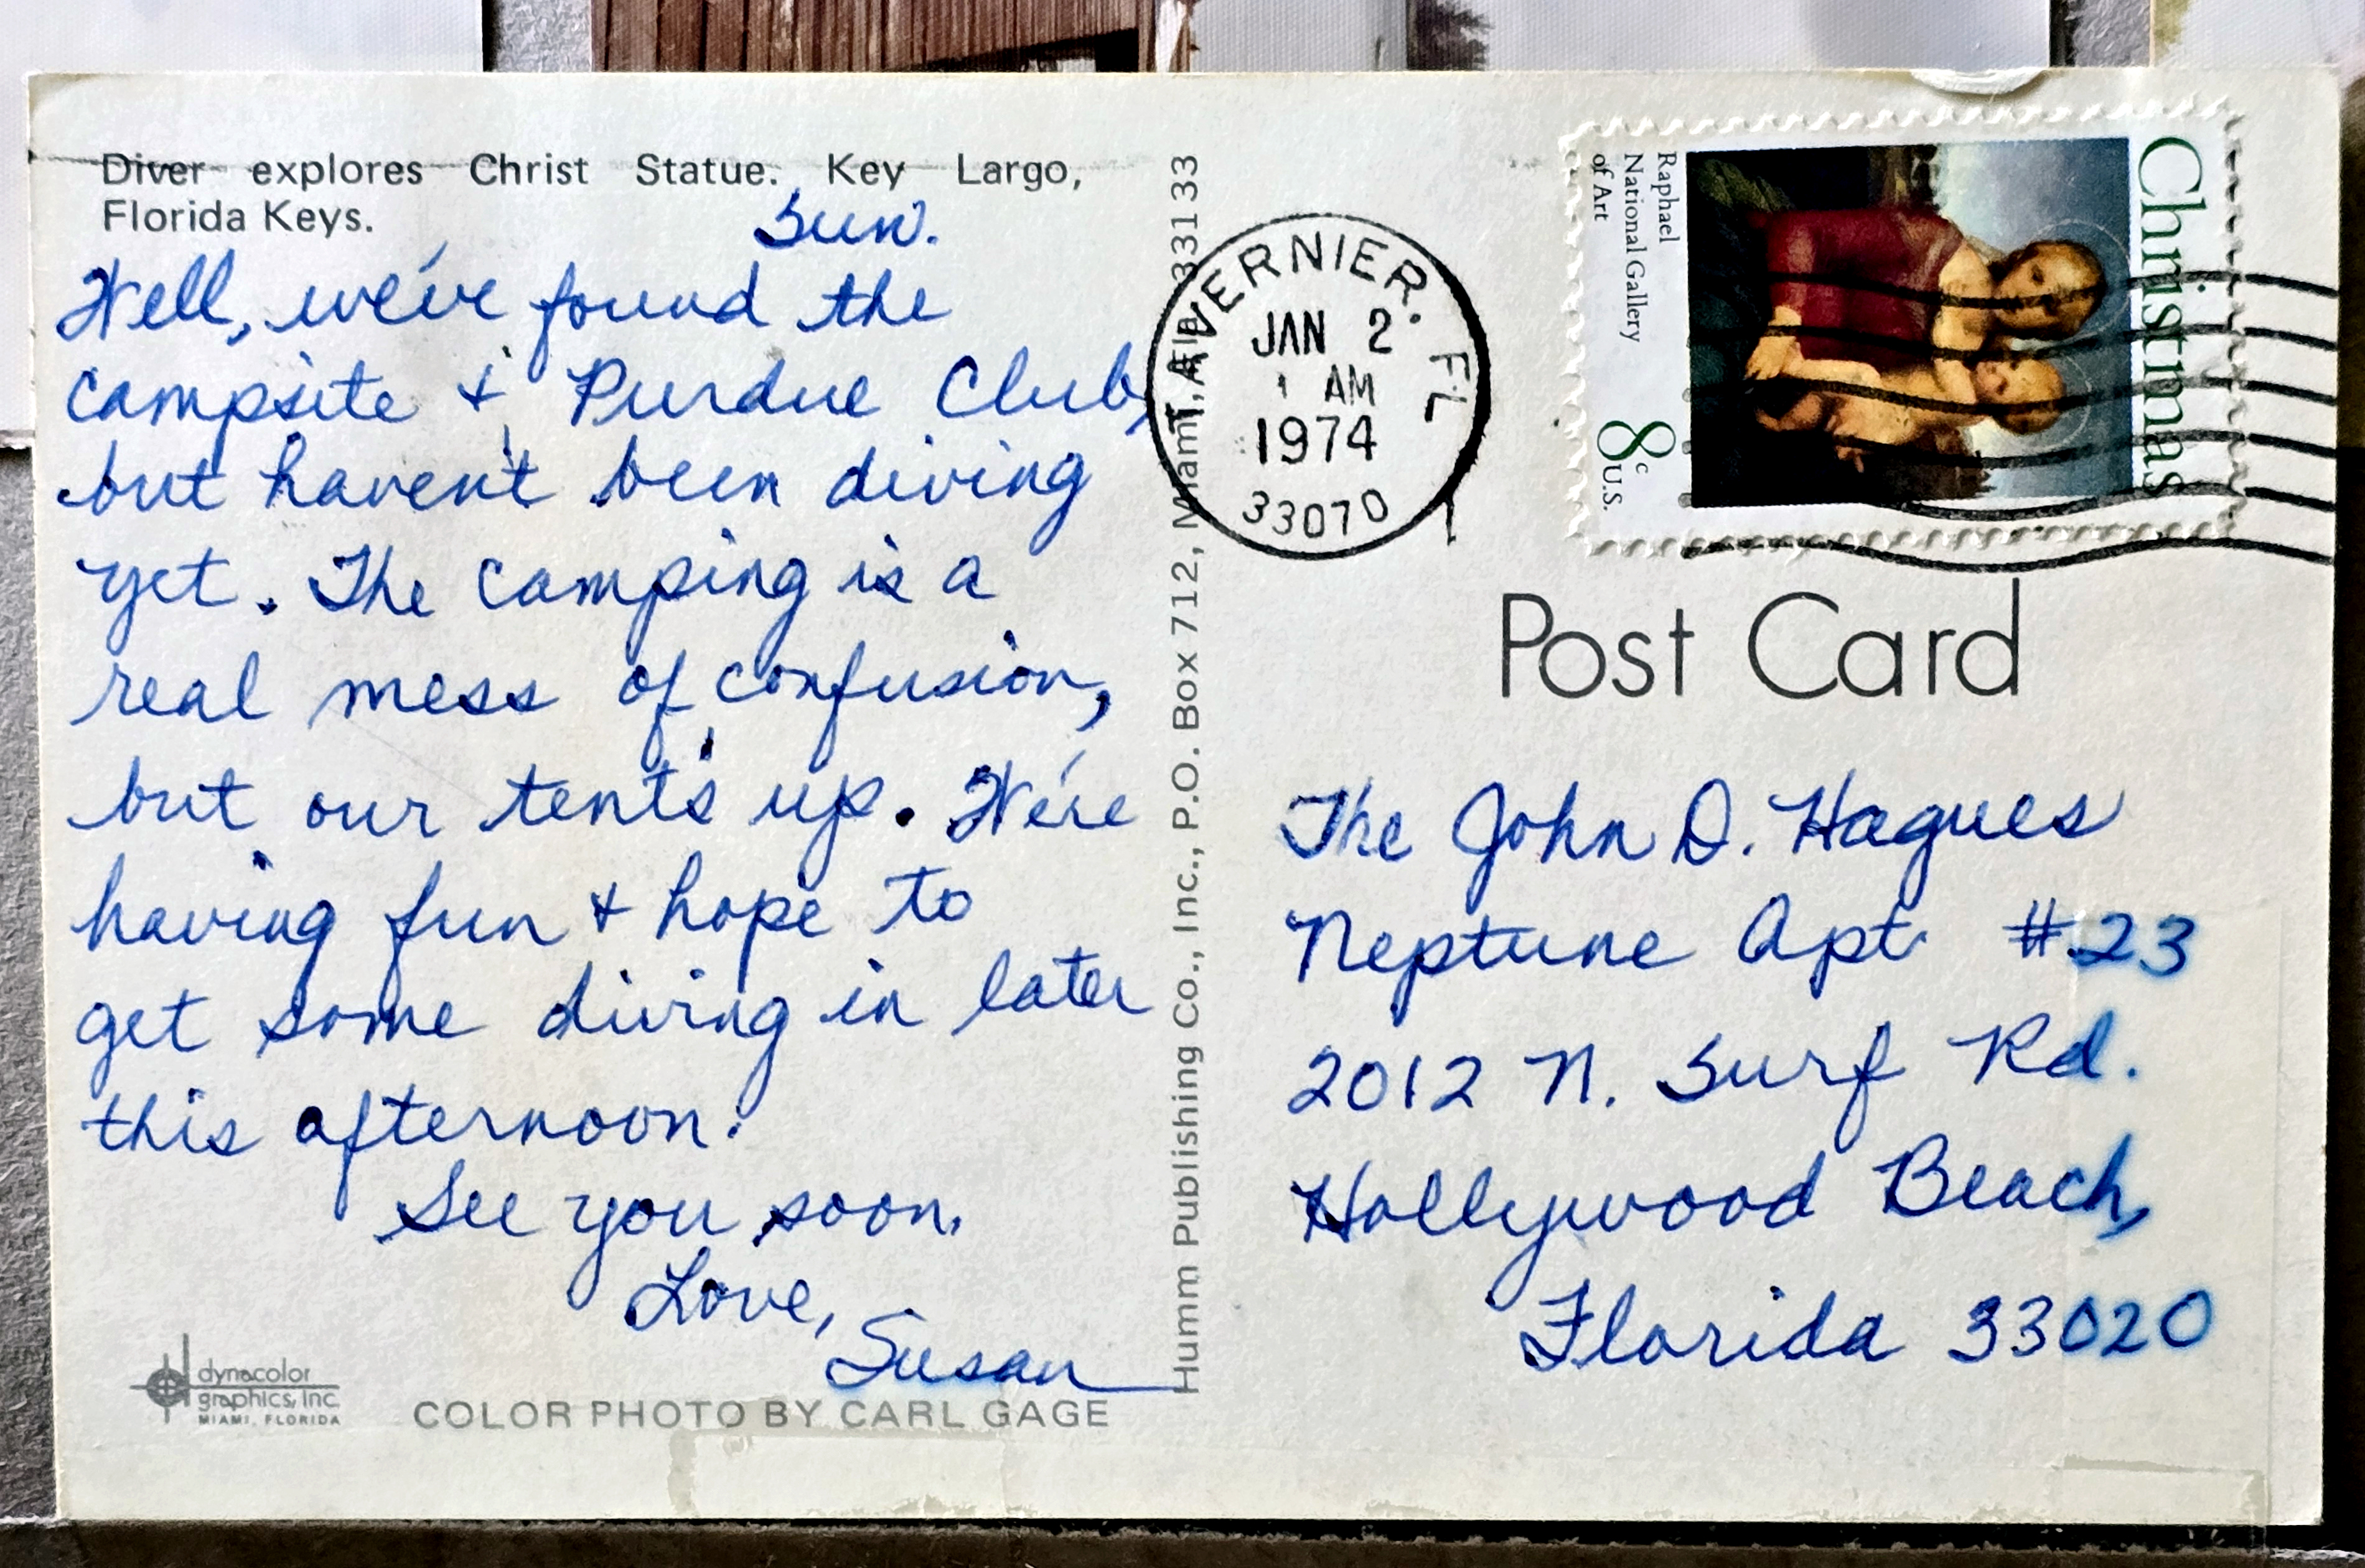 Diver explores Christ Statue. Key Largo,
Florida Keys.
Sun.
Well, we've found the
campsite & Purdue Club,
but haven't been diving
yet. The camping is a
real mess of confusion,
but our tent's up. We're
having fun & hope to
get some diving in later
this afternoon.
See you soon.
Love,
Susan
dynacolor
graphics, inc.
MIAMI, FLORIDA
COLOR PHOTO BY CARL GAGE
Humm Publishing Co., Inc., P.O. Box 712, Miami, Fla. 33133
TAVERNIER. FL
JAN 2
1 AM
1974
33070
Christmas
Raphael
National Gallery
of Art
8c U.S.
Post Card
The John D. Hagues
Neptune Apt #23
2012 N. Surf Rd.
Hollywood Beach,
Florida 33020